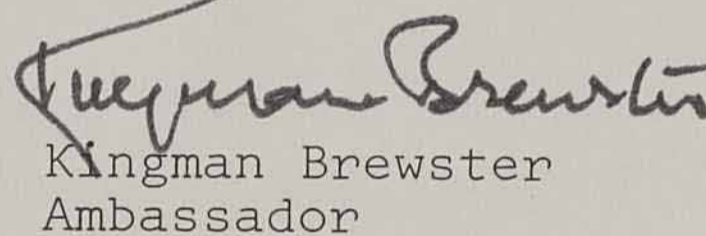 Kingman Brewster
Kingman Brewster
Ambassador